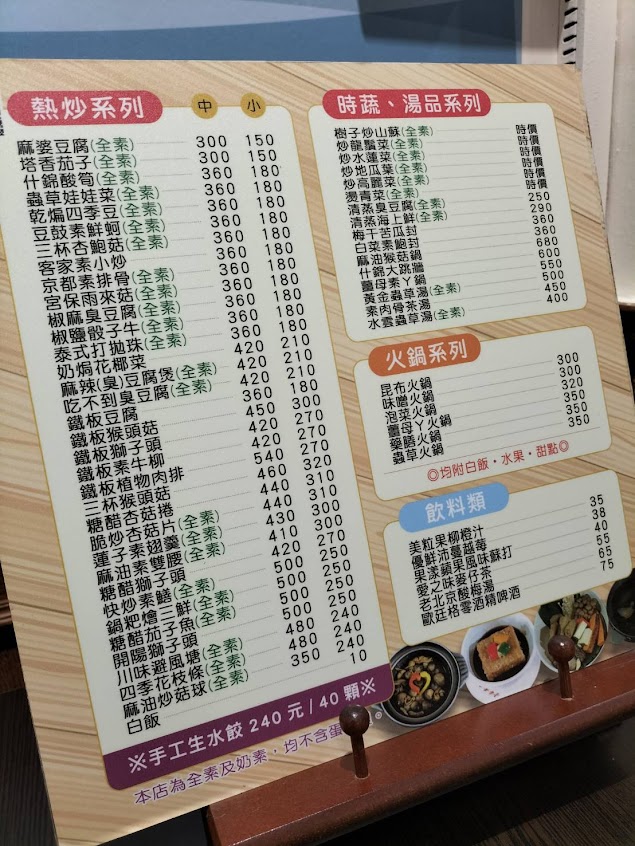 熱炒系列 中 小
麻婆豆腐(全素) 300 150
塔香茄子(全素) 300 150
什錦酸筍(全素) 360 180
蟲草娃娃菜(全素) 360 180
乾煸四季豆(全素) 360 180
豆鼓素鮮蚵(全素) 360 180
三杯杏鮑菇(全素) 360 180
客家素小炒 360 180
京都素排骨(全素) 360 180
宮保雨來菇(全素) 360 180
椒麻臭豆腐(全素) 360 180
椒鹽骰子牛(全素) 360 180
泰式打拋珠(全素) 360 180
奶焗花椰菜 420 210
麻辣(臭)豆腐煲(全素) 420 210
吃不到臭豆腐(全素) 420 210
鐵板豆腐 360 180
鐵板猴頭菇 450 300
鐵板獅子頭 420 270
鐵板素牛柳 420 270
鐵板植物肉排 540 270
三杯猴頭菇 460 320
糖醋杏菇捲 440 310
脆炒杏菇片(全素) 440 310
蓮子素翅羹(全素) 430 300
麻油素雙腰(全素) 410 300
糖醋獅子頭 420 270
快炒素鱔(全素) 500 250
鍋粑燴三鮮(全素) 500 250
糖醋茄子魚(全素) 500 250
開陽獅子頭
川味避風塘(全素) 480 240
四季花枝條(全素) 480 240
麻油炒菇球(全素) 350 240
白飯 10
※手工生水餃 240元/40顆※
本店為全素及奶素，均不含蛋
時蔬、湯品系列
樹子炒山蘇(全素) 時價
炒龍鬚菜(全素) 時價
炒水蓮菜(全素) 時價
炒地瓜葉(全素) 時價
炒高麗菜(全素) 時價
燙青菜(全素) 時價
清蒸臭豆腐(全素) 250
清蒸海上鮮(全素) 290
梅干苦瓜封 360
白菜素鮑封 360
麻油猴菇鍋 680
什錦大跳牆 600
薑母素丫鍋 550
黃金蟲草湯(全素) 500
素肉骨茶湯 450
水雲蟲草湯(全素) 400
火鍋系列
昆布火鍋 300
味噌火鍋 300
泡菜火鍋 320
薑母丫火鍋 350
藥膳火鍋 350
蟲草火鍋 350
◎均附白飯·水果·甜點◎
飲料類
美粒果柳橙汁 35
優鮮沛蔓越莓 38
果漾蘋果風味蘇打 40
愛之味麥仔茶 55
老北京酸梅湯 65
歐廷格零酒精啤酒 75